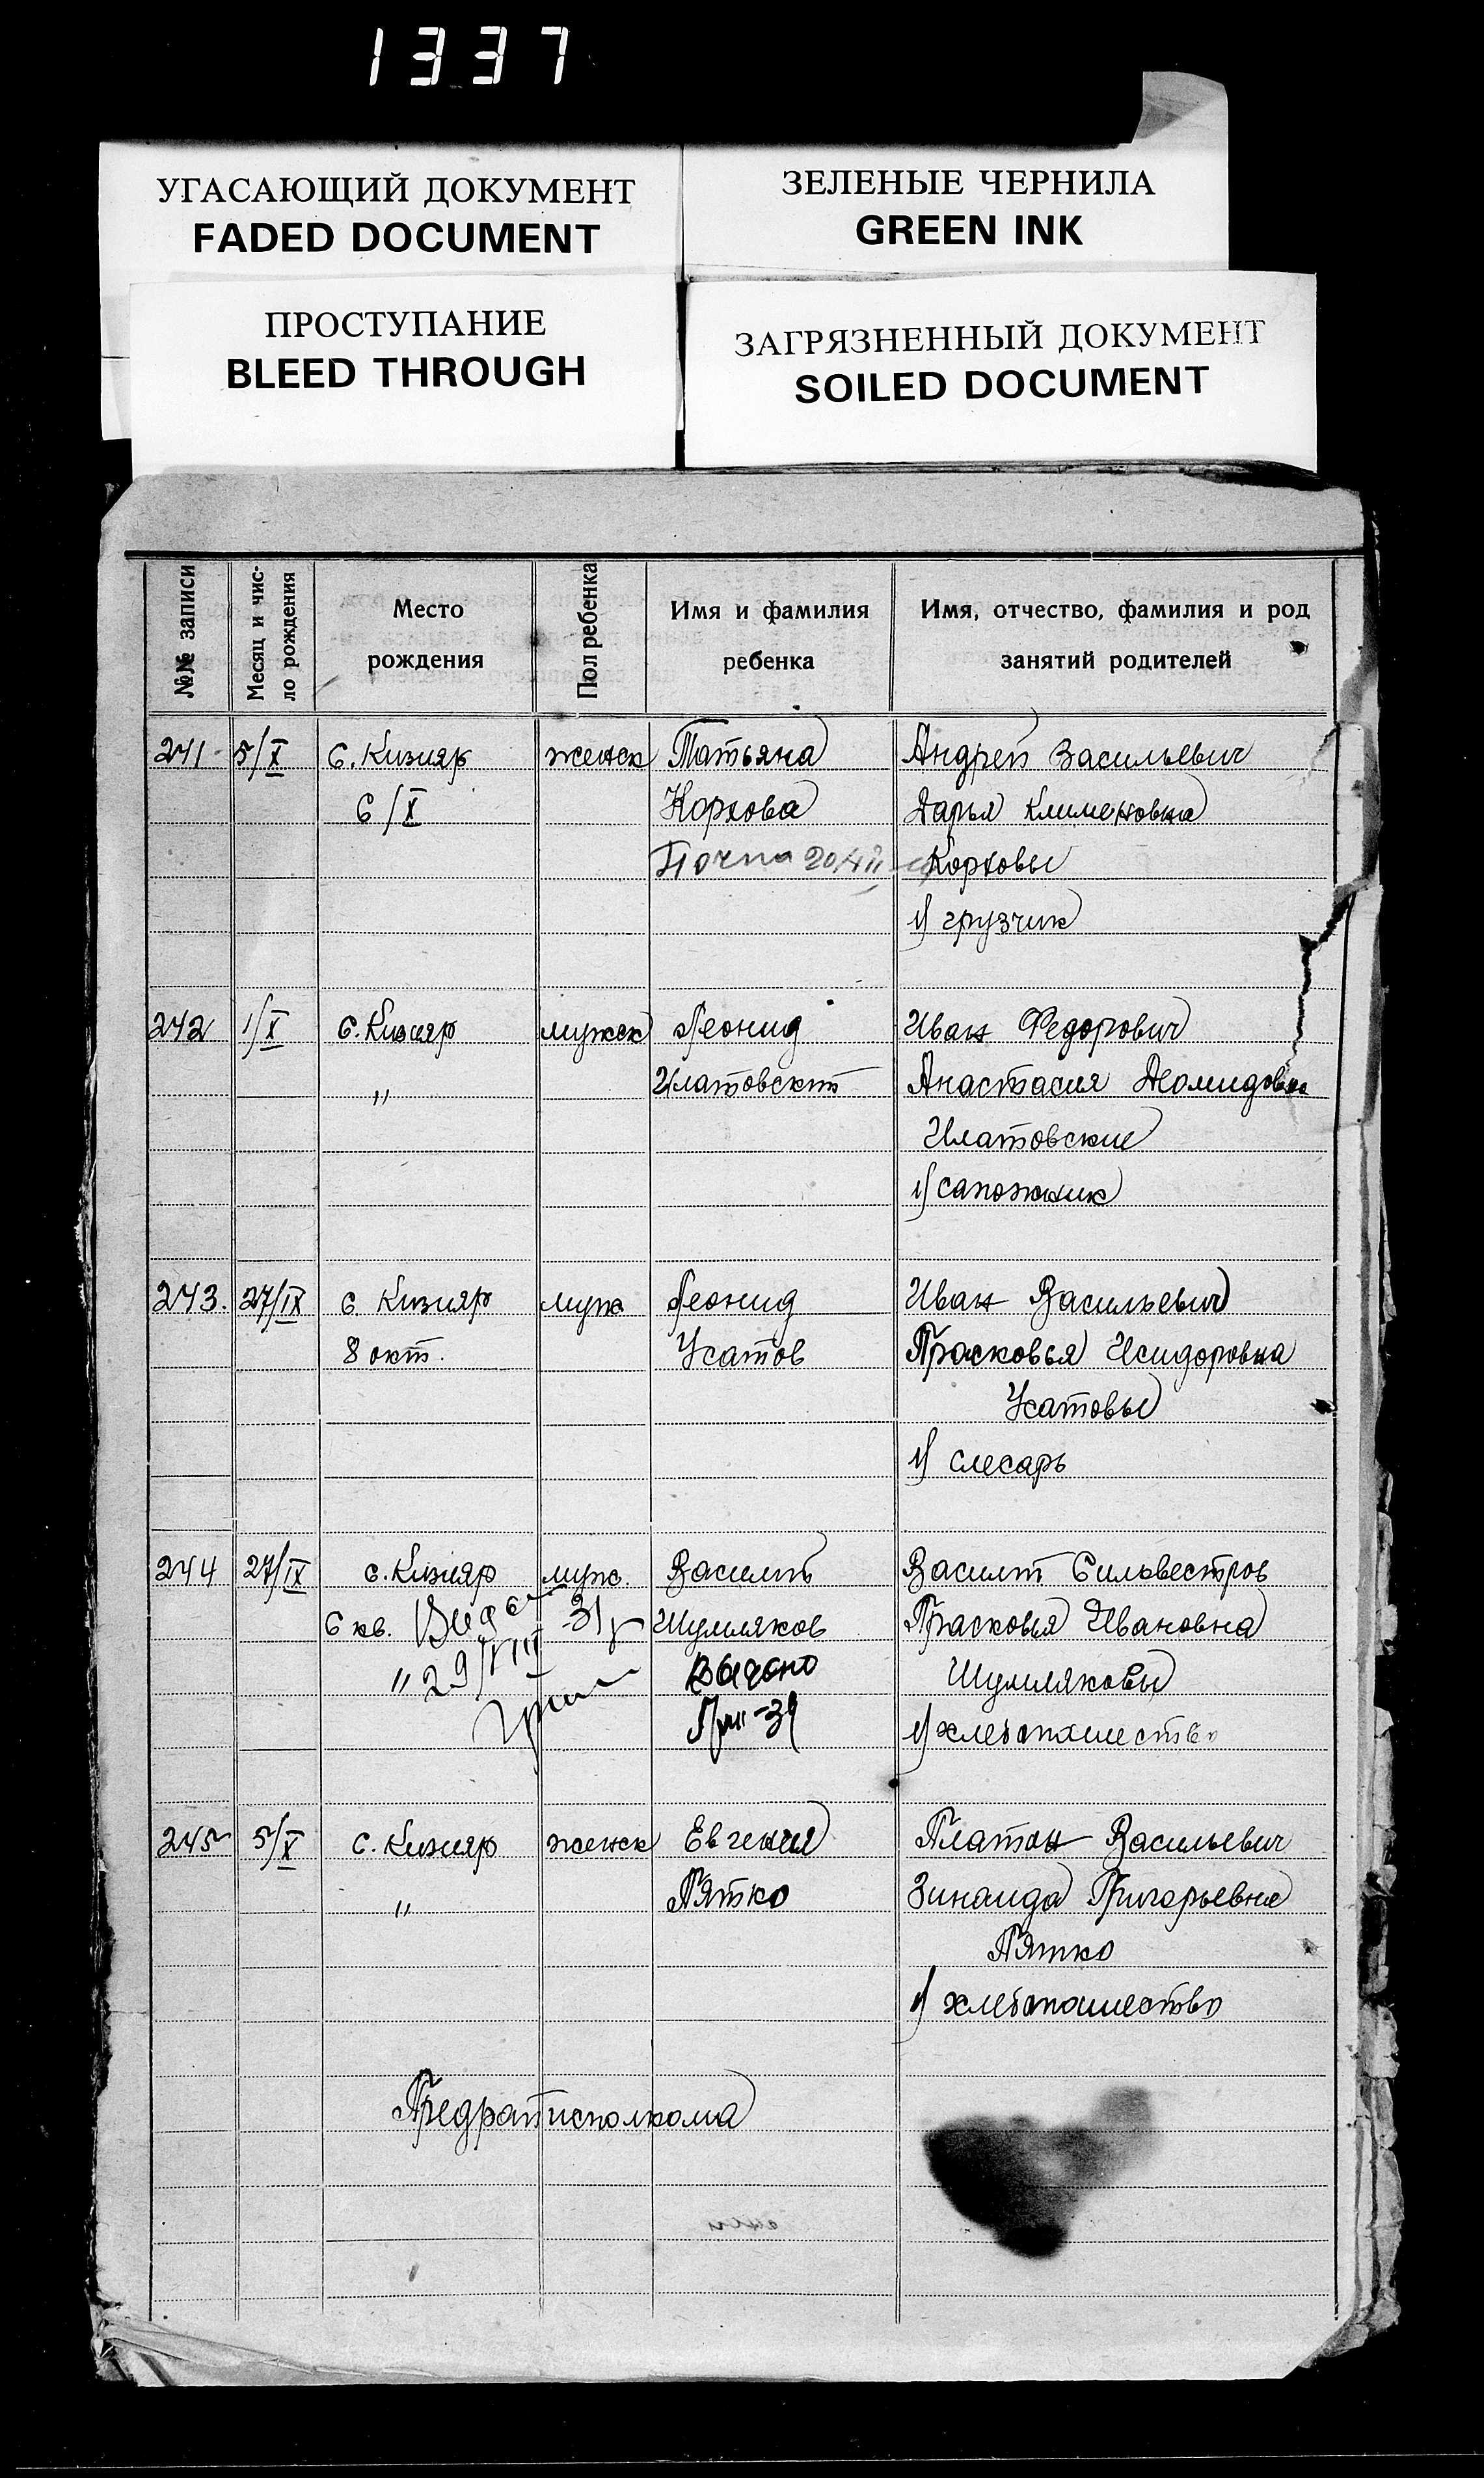 1337
УГАСАЮЩИЙ ДОКУМЕНТ
FADED DOCUMENT
ЗЕЛЕНЫЕ ЧЕРНИЛА
GREEN INK
ПРОСТУПАНИЕ
BLEED THROUGH
ЗАГРЯЗНЕННЫЙ ДОКУМЕНТ
SOILED DOCUMENT
№№ записи
Месяц и чис-
ло рождения
Место
рождения
Пол ребенка
Имя и фамилия
ребенка
Имя, отчество, фамилия и род
занятий родителей
241 5/X С. Кизияр женск Татьяна Андрей Васильевич
6/X Корхова Дарья Клименовна
Корховы
1) грузчик
242 1/X С. Кизияр мужск Леонид Иван Федорович
" Анастасия Деомидовна
1) сапожник
243. 27/IX С Кизияр муж Леонид Иван Васильевич
8 окт. Усатов Прасковья Исидоровна
Усатовы
1) слесарь
244 27/IX с. Кизияр муж. Василий Василий Сильвестров
6 кв. Шумляков Прасковья Ивановна
" 29/VIII Выдано Шумляковы
1) хлебопашество
245 5/X С. Кизияр женск Евгения Платон Васильевич
" Пятко Зинаида Григорьевна
Пятко
1) хлебопашество
Предрайисполкома